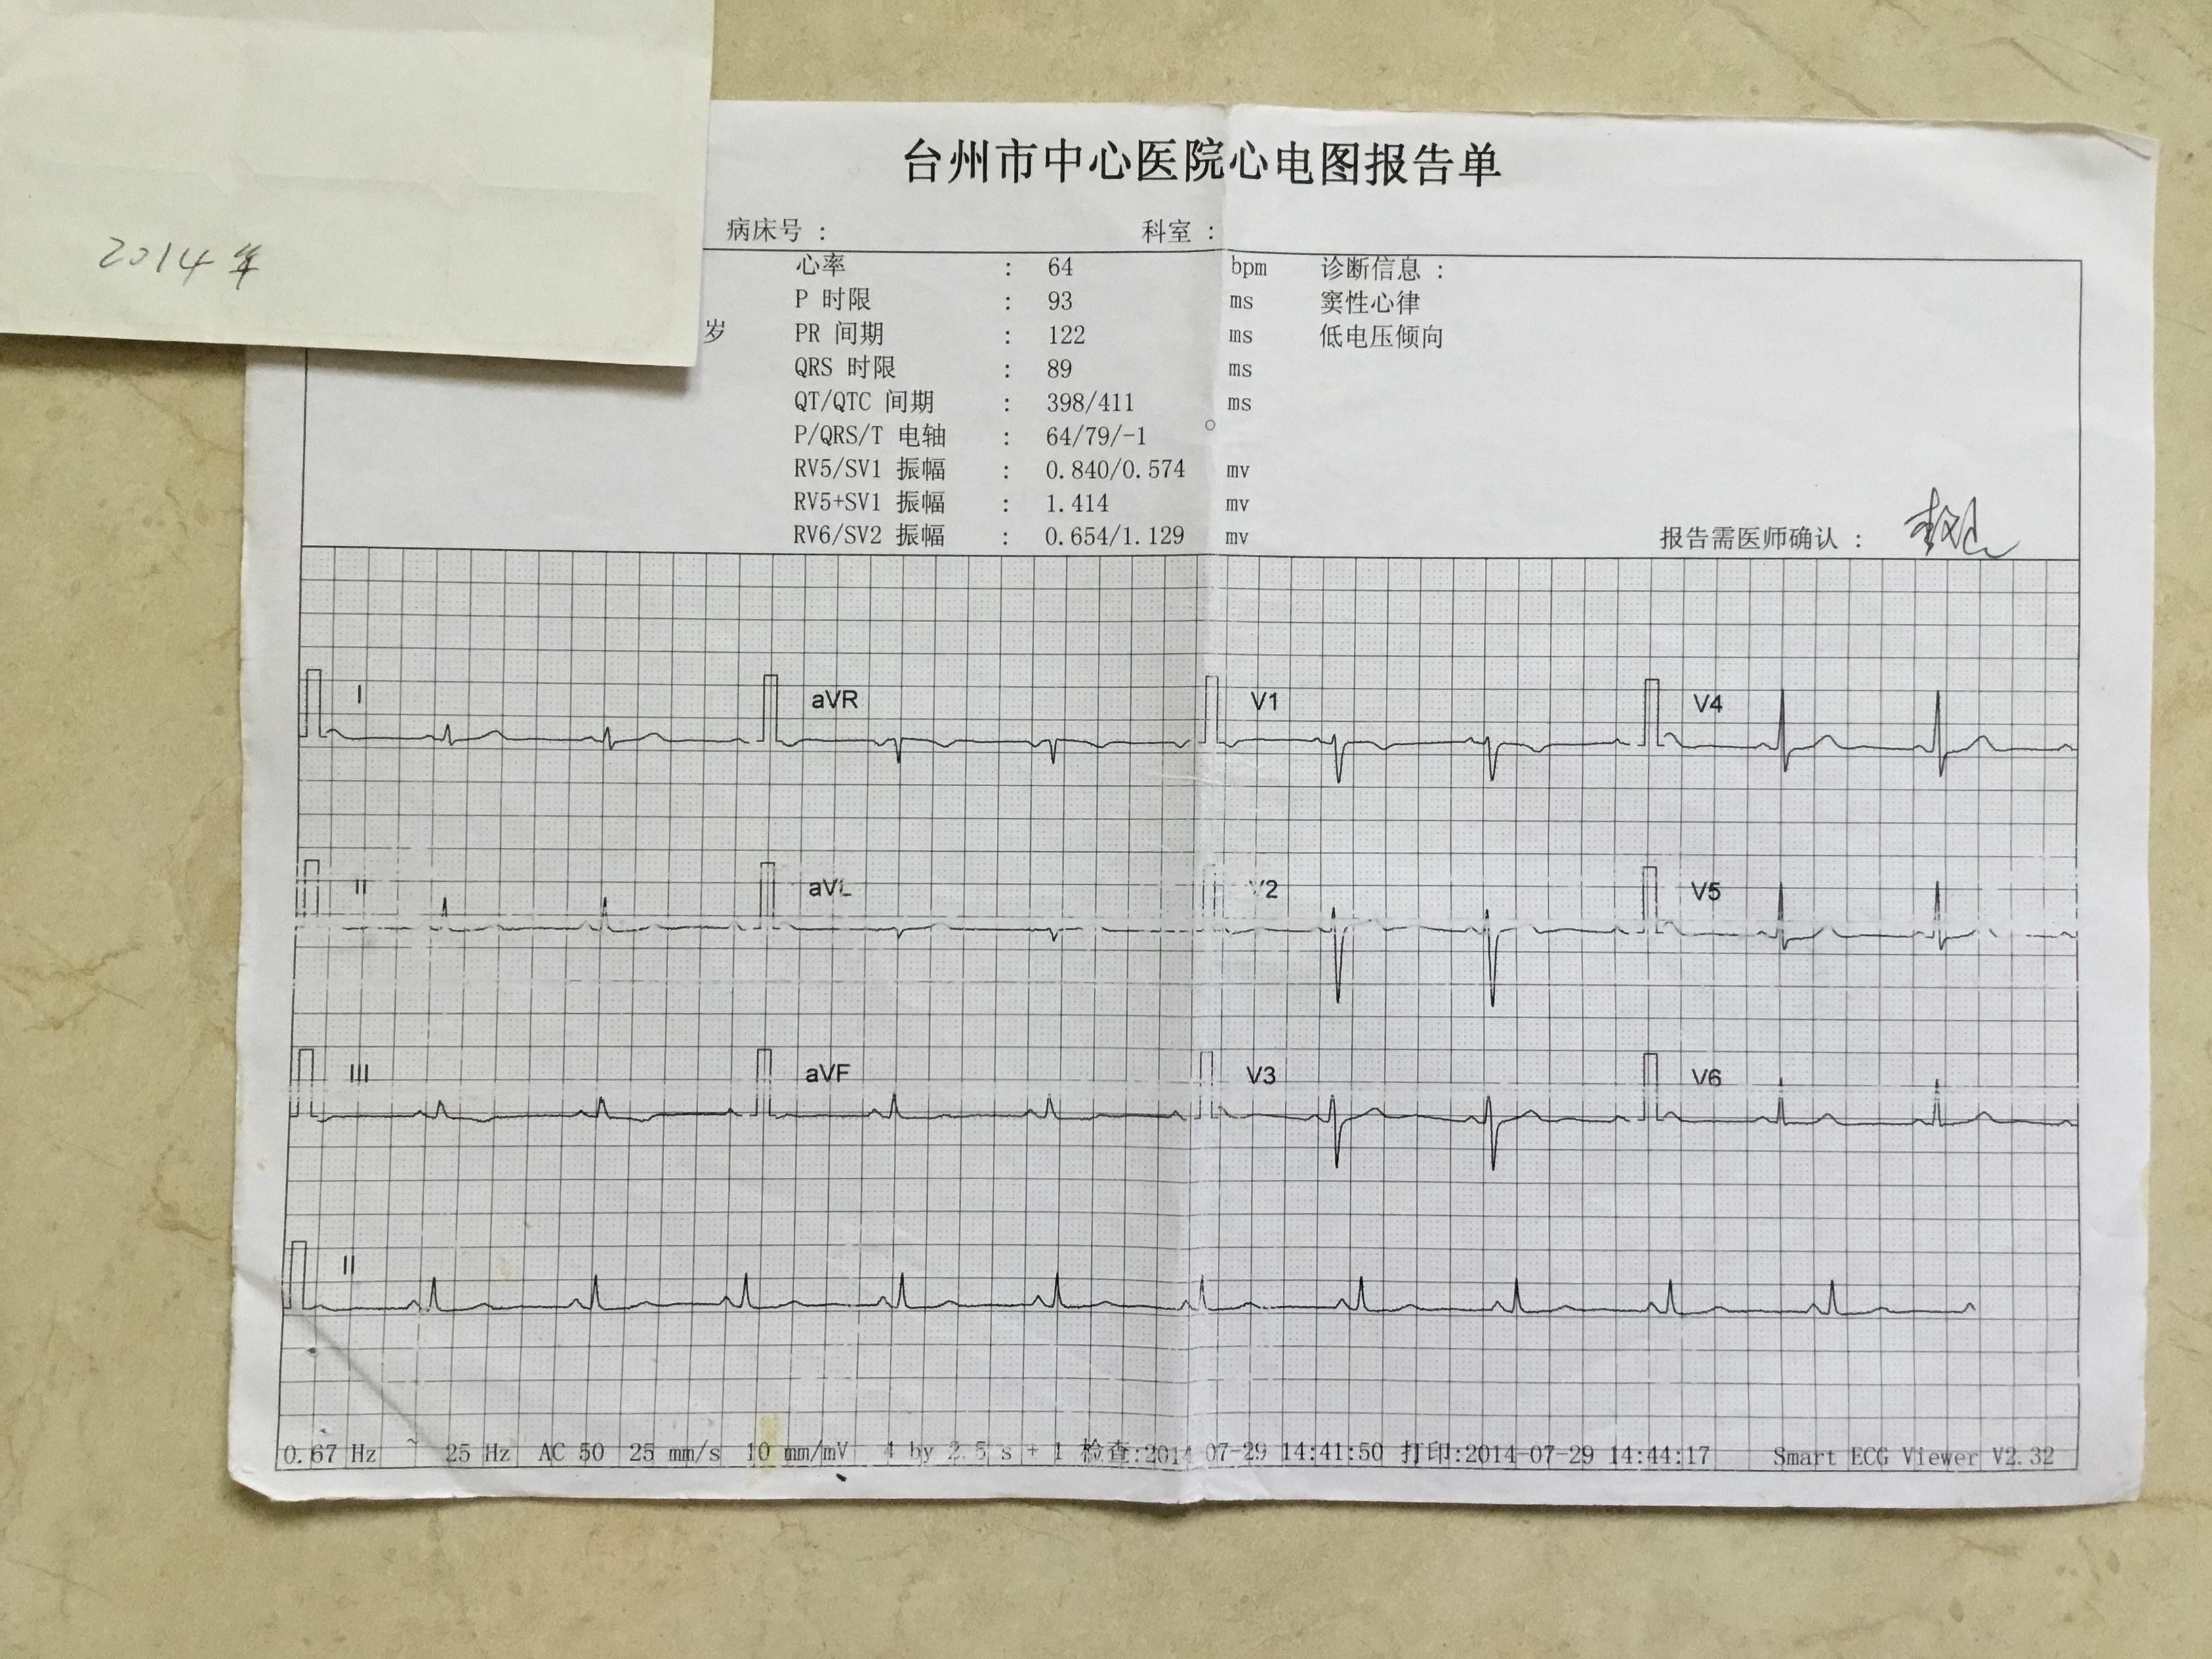 2014年
台州市中心医院心电图报告单
病床号 : 科室 :
心率 : 64 bpm 诊断信息 :
P 时限 : 93 ms 窦性心律
岁 PR 间期 : 122 ms 低电压倾向
QRS 时限 : 89 ms
QT/QTC 间期 : 398/411 ms
P/QRS/T 电轴 : 64/79/-1 °
RV5/SV1 振幅 : 0.840/0.574 mv
RV5+SV1 振幅 : 1.414 mv
RV6/SV2 振幅 : 0.654/1.129 mv
报告需医师确认 :
I aVR V1 V4
II aVL V2 V5
III aVF V3 V6
II
0.67 Hz ~ 25 Hz AC 50 25 mm/s 10 mm/mV 4 by 2.5 s + 1 检查:2014-07-29 14:41:50 打印:2014-07-29 14:44:17 Smart ECG Viewer V2.32